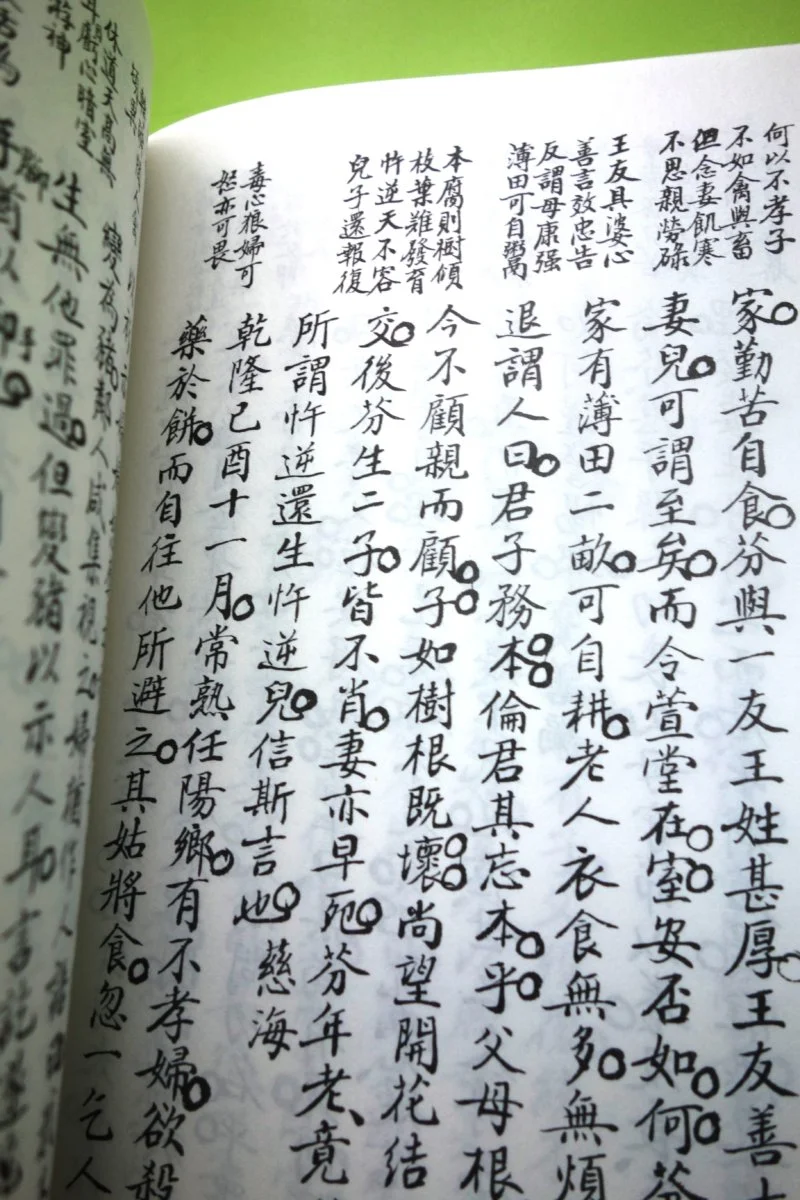 何以不孝子
不如禽與畜
但念妻飢寒
不思親勞碌
王友具婆心
善言效忠告
反謂母康强
薄田可自粥
本腐則樹傾
枝葉難發育
忤逆天不容
兒子還報復
毒心狼婦可
怒亦可畏
家勤苦自食芬與一友王姓甚厚王友善
妻兒可謂至矣而令萱堂在室安否如何芬
家有薄田二畝可自耕老人衣食無多無煩
退謂人曰君子務本倫君其忘本乎父母根
今不顧親而顧子如樹根既壞尚望開花結
交後芬生二子皆不肖妻亦早死芬年老竟
所謂忤逆還生忤逆兒信斯言也 慈海
乾隆己酉十一月常熟任陽鄉有不孝婦欲殺
藥於餅而自往他所避之其姑將食忽一乞人
休道天高無
虧心暗室
變為豬
人咸集視之婦猶作人語曰
生無他罪過但變豬以示人耳言訖